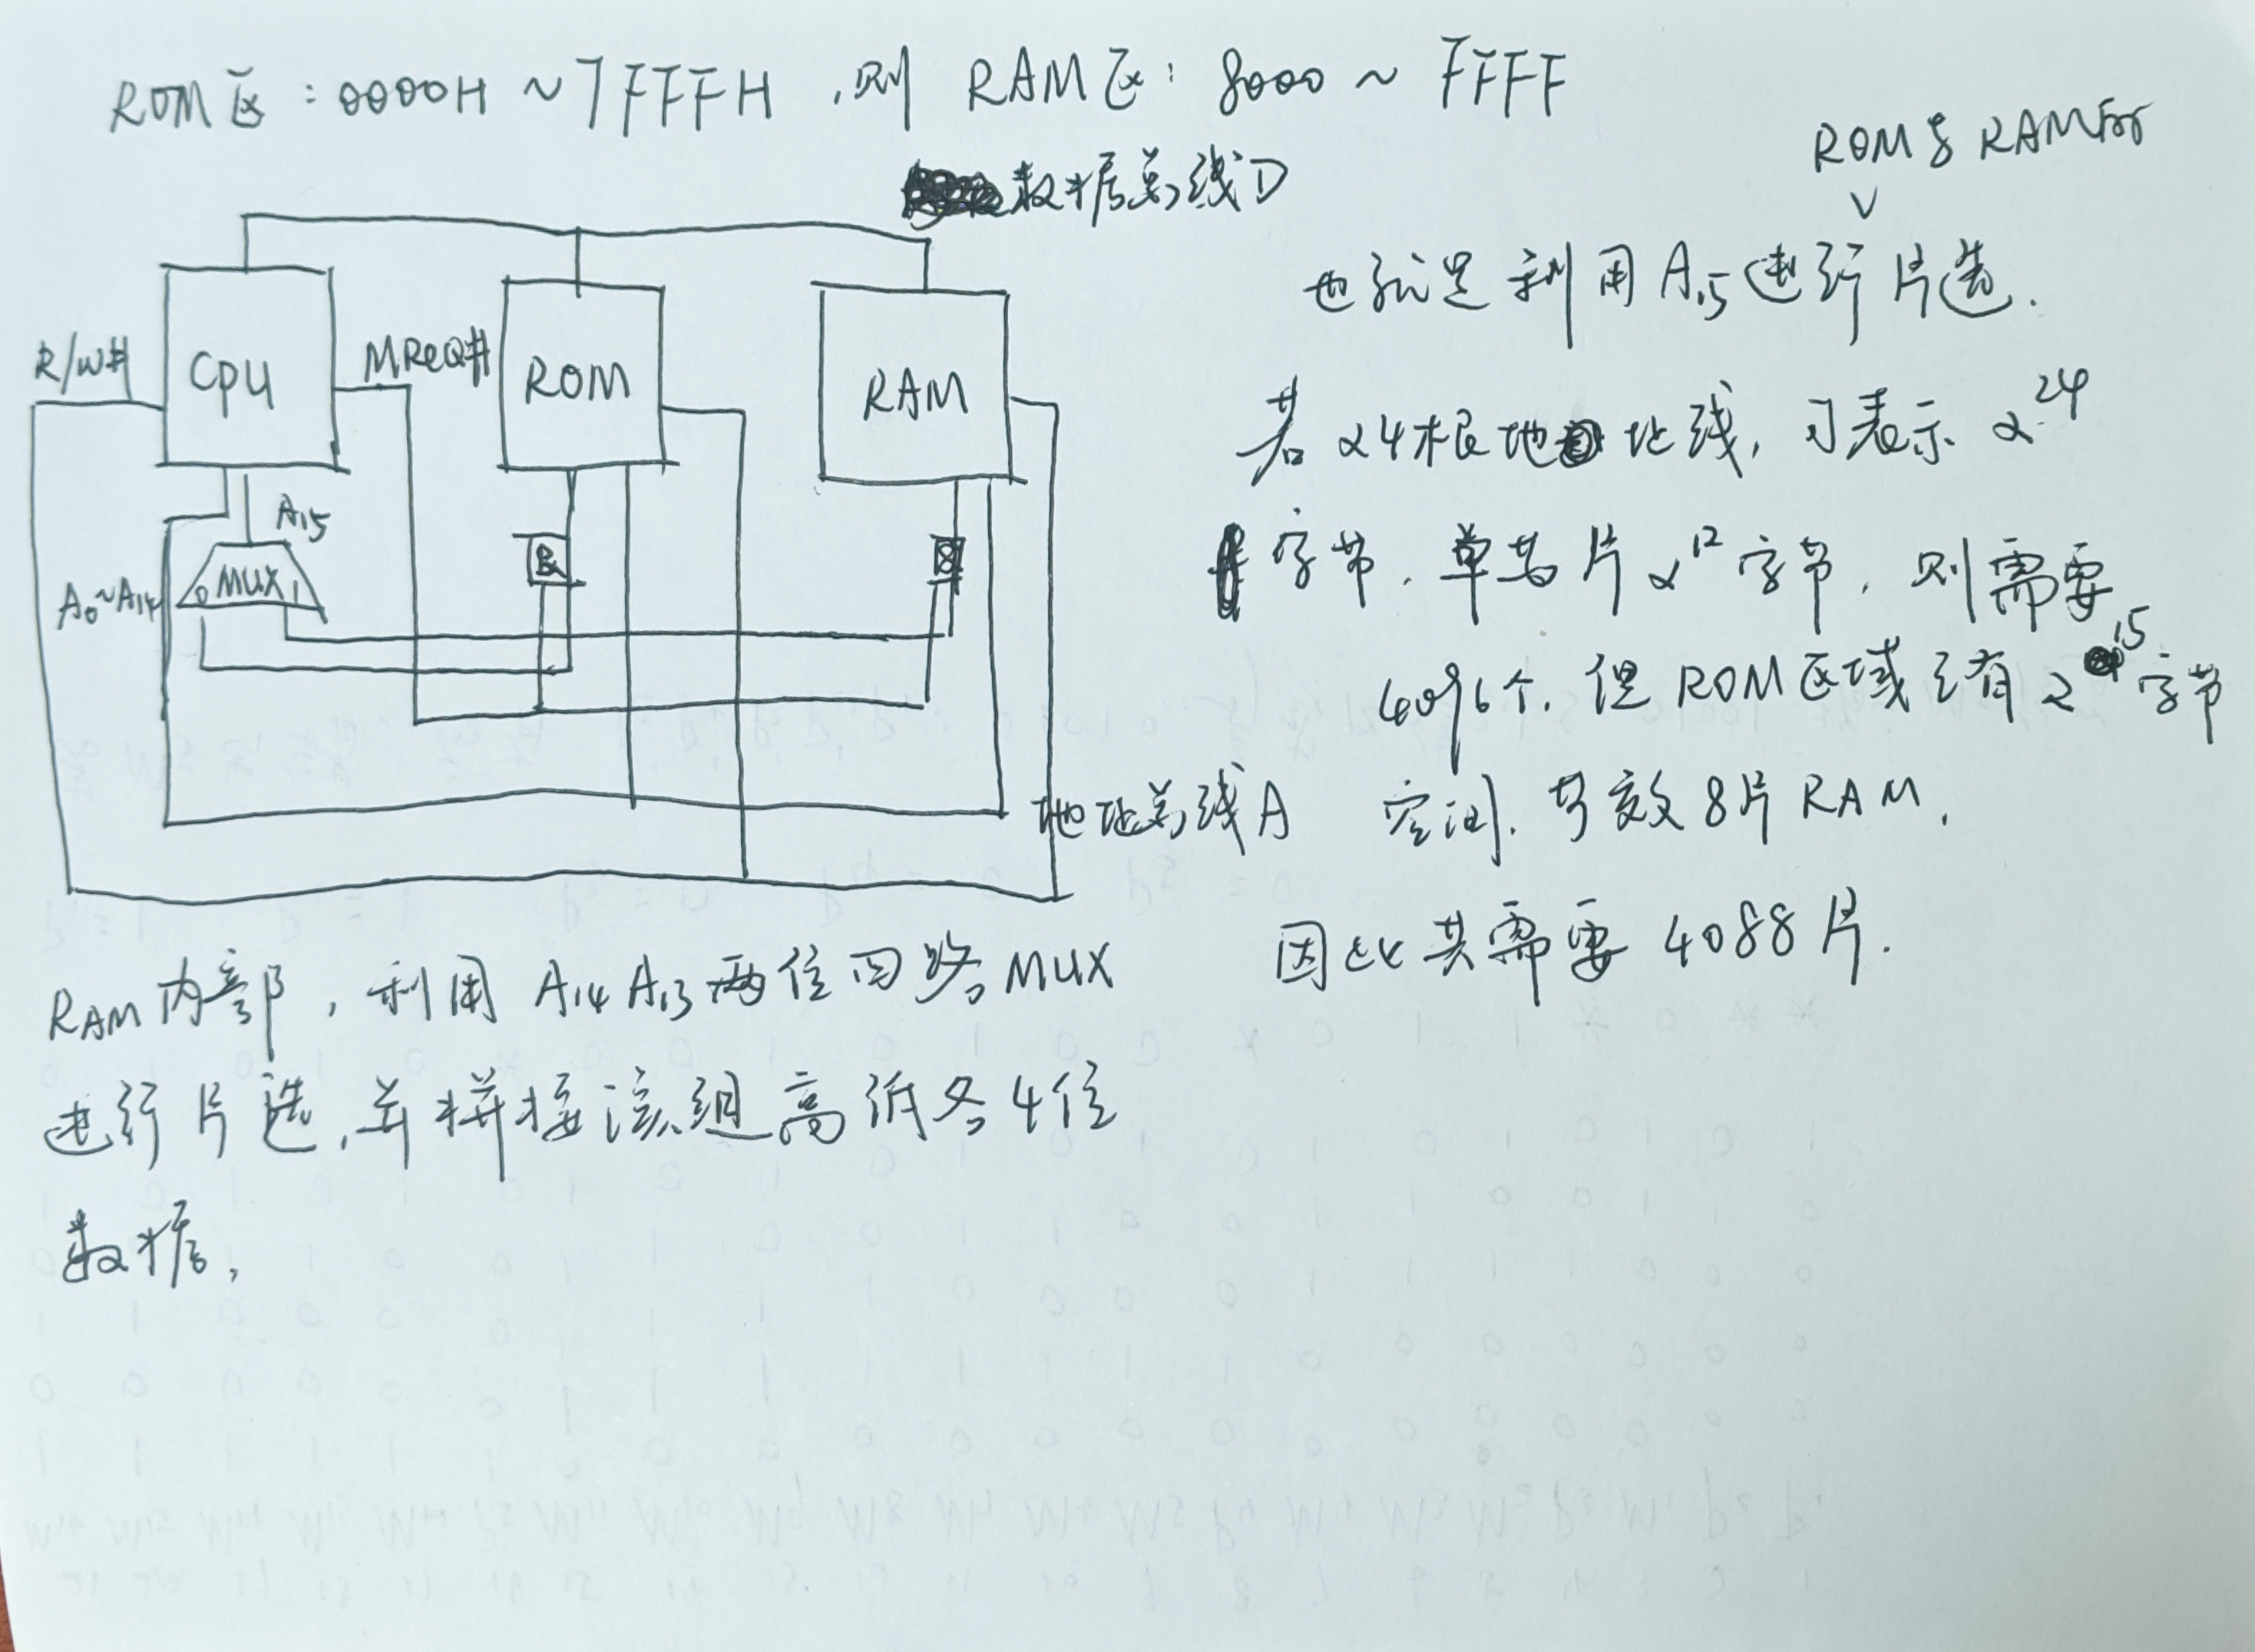 ROM区:0000H~7FFFH,则 RAM区:8000~FFFF
数据总线D
ROM与RAM所
也就是利用A15进行片选.
R/W#
CPU
MREQ#
ROM
RAM
若24根地址线,可表示2^24
字节.单片2^12字节,则需要
4096个.但ROM区域已有2^15字节
空间.等效8片RAM,
因此共需要4088片.
A15
MUX
0
1
A0~A14
&
&
地址总线A
RAM内部,利用A14A13两位四路MUX
进行片选,并拼接该组高低各4位
数据,